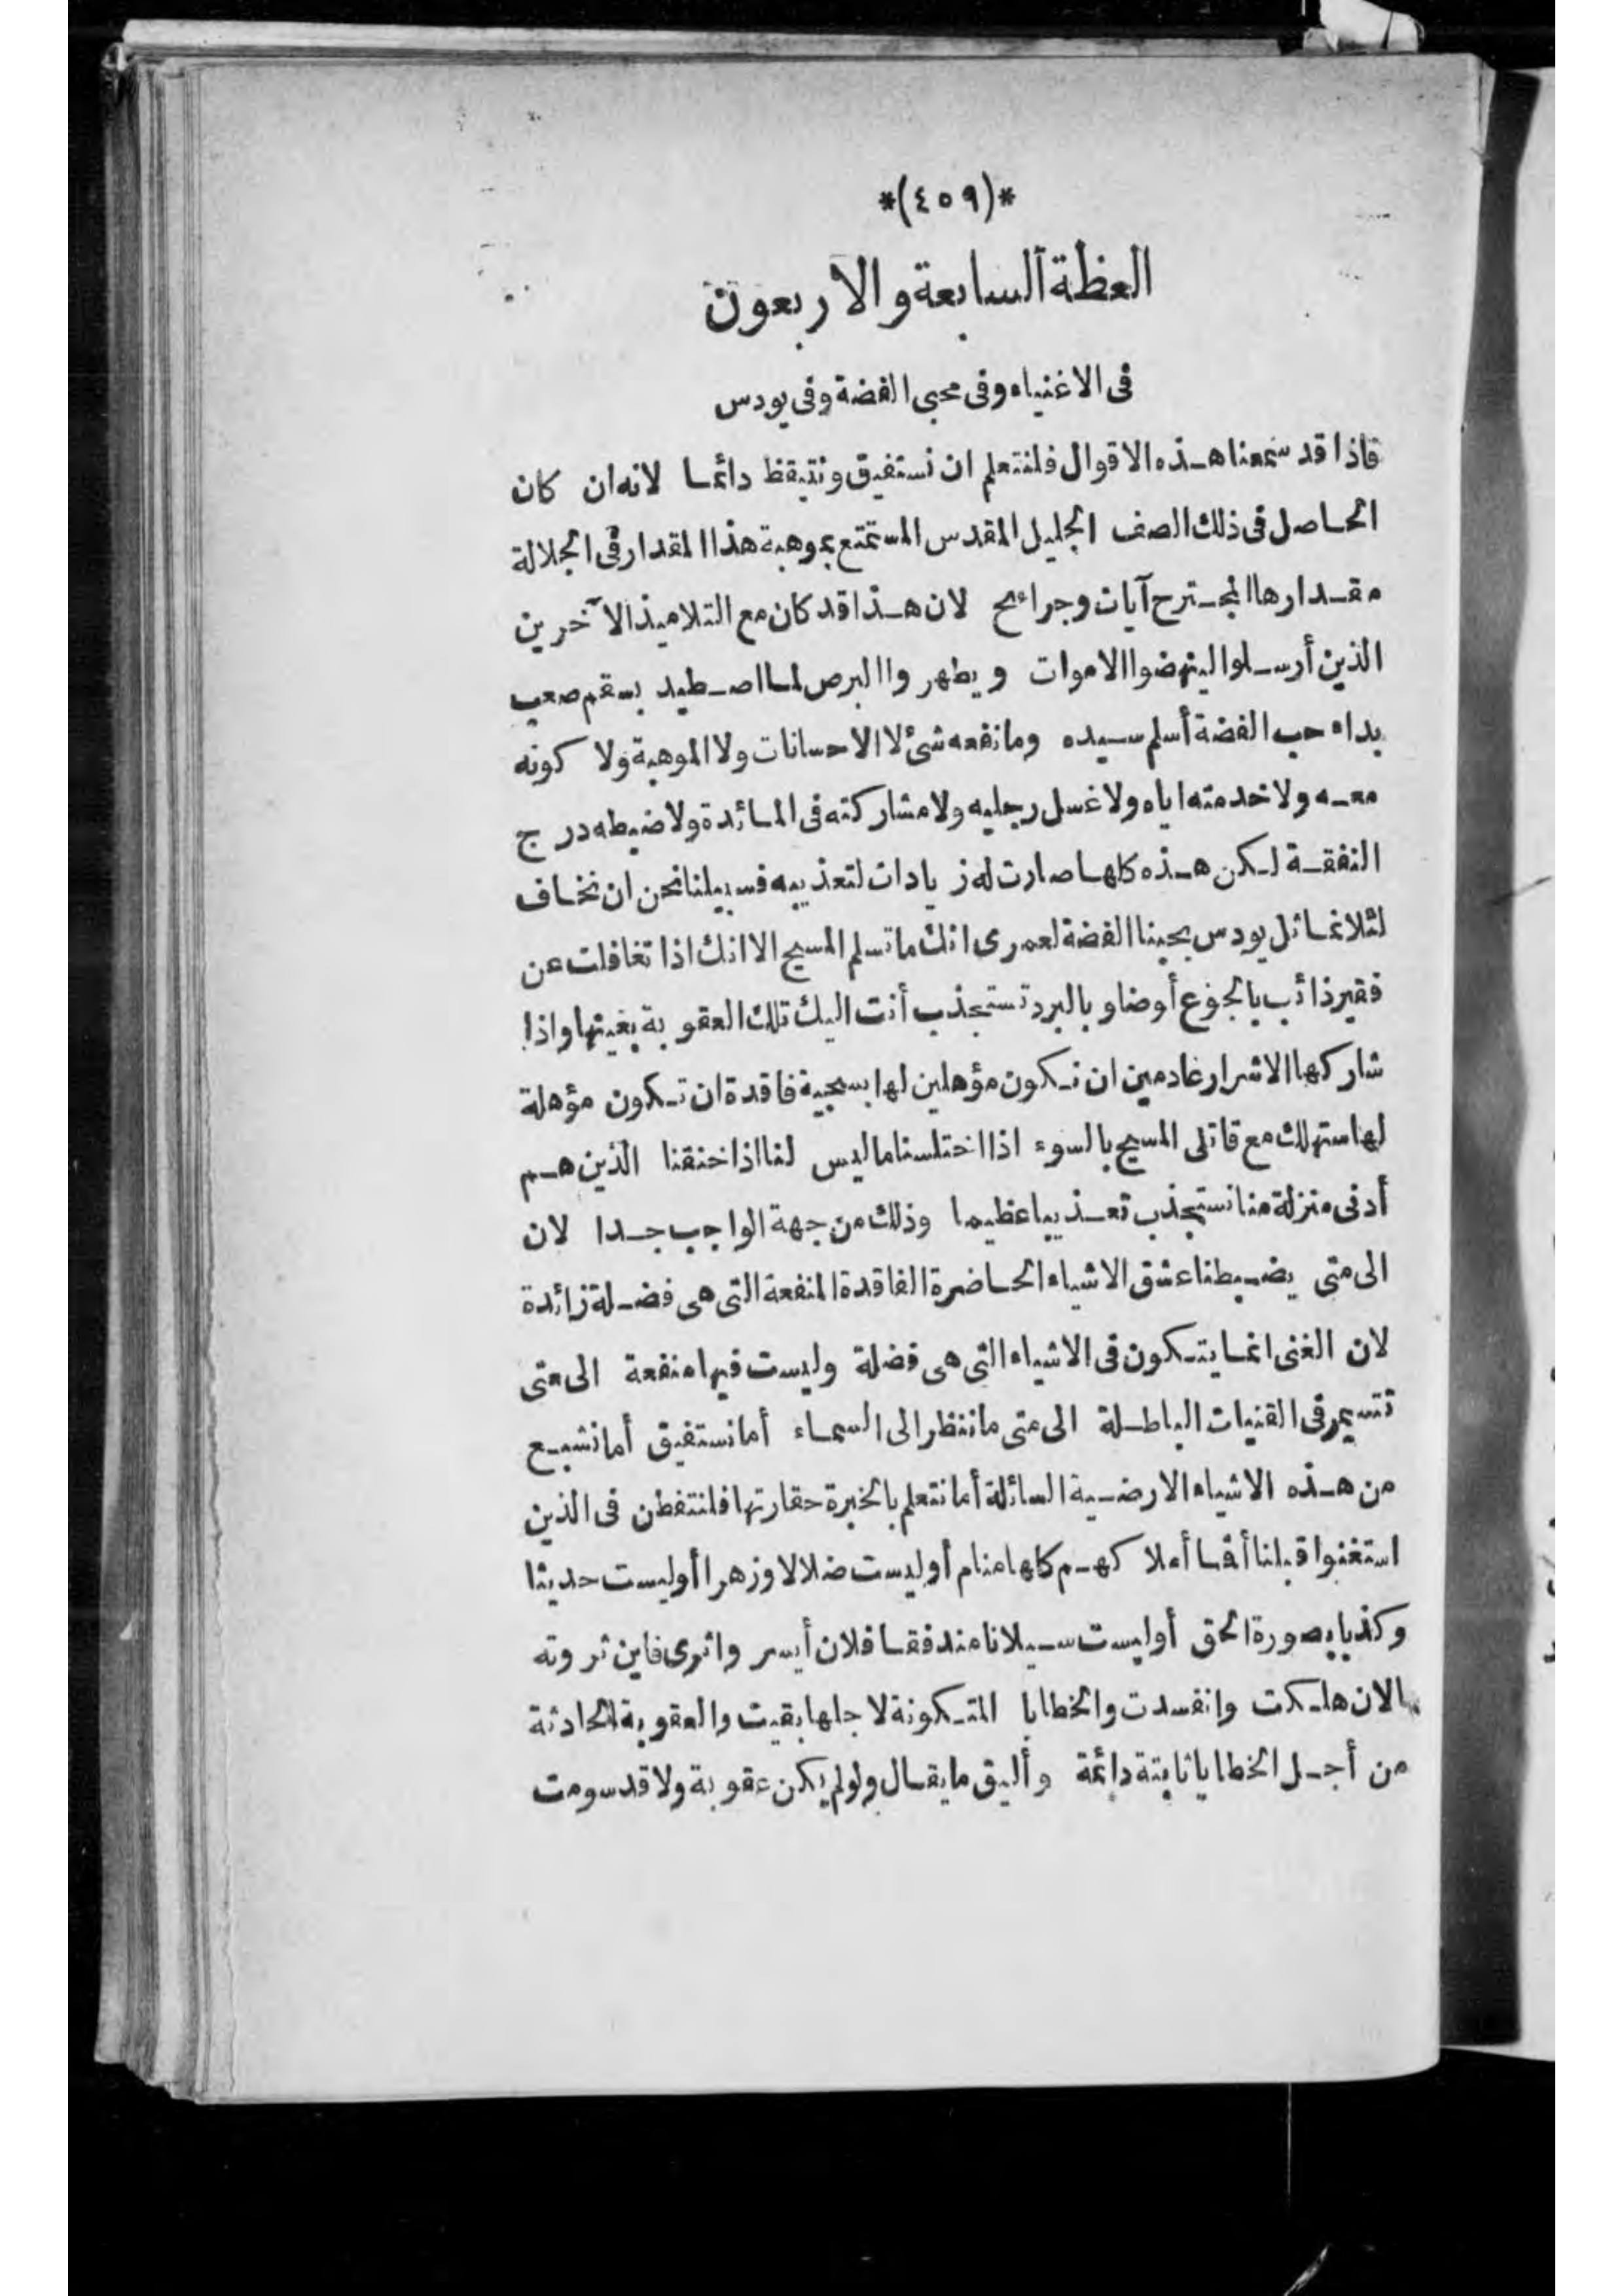 *(٤٥٩)*
العظة السابعة والاربعون
فى الاغنياء وفى محبى الفضة وفى يودس
فاذا قد سمعنا هذه الاقوال فلنتعلم ان نستفيق ونتيقظ دائما لانه ان كان
الحاصل فى ذلك الصف الجليل المقدس المستمتع بموهبة هذا المقدار فى الجلالة
مقدارها المجترح آيات وجرائح لان هذا قد كان مع التلاميذ الآخرين
الذين أرسلوا لينهضوا الاموات ويطهروا البرص لما اصطيد بسقم صعب
بداء حب الفضة أسلم سيده وما نفعه شئ لا الاحسانات ولا الموهبة ولا كونه
معه ولا خدمته اياه ولا غسل رجليه ولا مشاركته فى المائدة ولا ضبطه درج
النفقة لكن هذه كلها صارت له زيادات لتعذيبه فسبيلنا نحن ان نخاف
لئلا نماثل يودس بحبنا الفضة لعمرى انك ما تسلم المسيح الا انك اذا تغافلت عن
فقير ذائب بالجوع أو ضاو بالبرد تستجذب أنت اليك تلك العقوبة بغيتها واذا
شاركها الاشرار عادمين ان نكون مؤهلين لها بسجية فاقدة ان تكون مؤهلة
لها ستهلك مع قاتلى المسيح بالسوء اذا اختلسنا ما ليس لنا اذا خنقنا الذين هم
أدنى منزلة منا نستجذب تعذيبا عظيما وذلك من جهة الواجب جدا لان
الى متى يضبطنا عشق الاشياء الحاضرة الفاقدة المنفعة التى هى فضلة زائدة
لان الغنى انما يتكون فى الاشياء التى هى فضلة وليست فيها منفعة الى متى
نتسمر فى القنيات الباطلة الى متى ما ننظر الى السماء أما نستفيق أما نشبع
من هذه الاشياء الارضية السائلة أما نتعلم بالخبرة حقارتها فلنتفطن فى الذين
استغنوا قبلنا أفما أملاكهم كلها منام أو ليست ضلالا وزهرا أوليست حديثا
وكذبا بصورة الحق أوليست سيلانا مندفقا فلان أيسر واثرى فاين ثروته
الان هلكت وانفسدت والخطايا المتكونة لاجلها بقيت والعقوبة الحادثة
من أجل الخطايا ثابتة دائمة وأليق ما يقال ولو لم يكن عقوبة ولا قد سومت